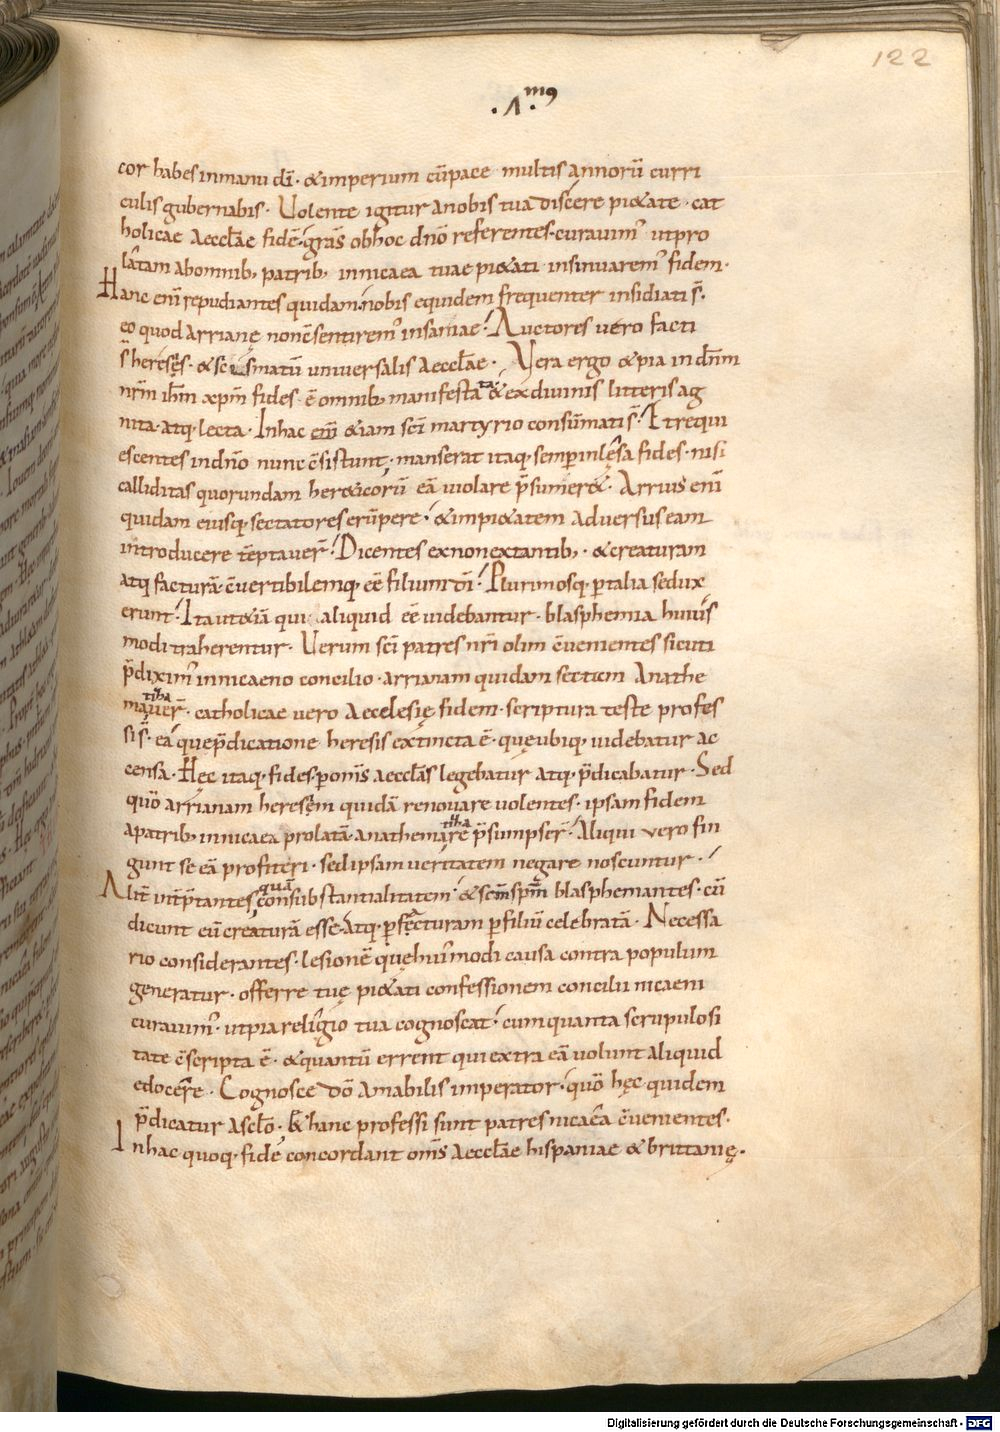 122
·Λ·mꝰ
cor habes inmanu dī· &imperium cūpace multis annorū curri
culis gubernabis· Uolente igitur anobis tua discere pi&ate· cat
holicae aecclae fidē· gras̄ obhoc dnō referentes· curauimꝰ utpro
latam abomnib; patrib; innicaea tuae pi&ati insinuaremꝰ fidem·
Hanc enī repudiantes quidam· nobis equidem frequenter insidiati s̄·
eo quod arrianę nonc̄sentiremꝰ insaniae· Auctores uero facti
s̄ hereses· &scismatū uniuersalis aecclae· Uera ergo &pia in dnm̄
nrm̄ ihm̄ xpm̄ fides· ē omnib; manifestata &exdiuinis litteris ag
nita· atq; lecta· Inhac &iam sci martyrio consūmati s̄· Et requi
escentes indnō nunc c̄sistunt· manserat itaq; semperinlęsa fides· nisi
calliditas quorundam her&icorū eā uiolare p̄sumer&· Arrius enī
quidam eiusq; sectatores erūpere· &impi&atem aduersus eam
introducere tēptauer̄· Dicentes exnonextantib;· &creaturam
atq; facturā· c̄uertibilemq; eē filium dī· Plurimosq; ꝑtalia sedux
erunt· Itaut&iā qui aliquid eē uidebantur· blasphemia huius
modi traherentur· Uerum sci patres nri olim c̄uenientes sicuti
p̄diximꝰ innicaeno concilio· arrianam quidam sectam Anathe
matiħauer̄· catholicae uero aecclesię fidem· scriptura teste profes
si s̄· eā quep̄dicatione heresis extincta ē· quęubiq; uidebatur ac
censa· Hęc itaq; fides ꝑomīs aecclas̄ legebatur atq; p̄dicabatur· Sed
quō arrianam heresem quidā renouare uolentes· ipsam fidem
apatrib; innicaea prolatā· anathematiħare p̄sumpser̄· Aliqui uero fin
gunt se eā profiteri· sedipsam ueritatem negare noscuntur·
Alit̄ int̄p̄tantes quā consubstantialitatem· &scm̄spm̄ blasphemantes· cū
dicunt eū creaturā esse· atq; ꝑfacturam ꝑfiliū celebratā· Necessa
rio considerantes· lesionē quęhuiꝰmodi causa contra populum
generatur· offerre tuę pi&ati confessionem concilii nicaeni
curauimꝰ· utpia religio tua cognoscat· cum quanta scrupulosi
tate c̄scripta ē· &quantū errent qui extra eā uolunt aliquid
edocere· Cognosce dō amabilis imperator· quō hęc quidem
p̄dicatur ascło· &hanc professi sunt patres nicaea c̄uenientes·
Inhac quoq; fidē concordant omīs aecclae hispaniae &brittanię·
Digitalisierung gefördert durch die Deutsche Forschungsgemeinschaft - DFG